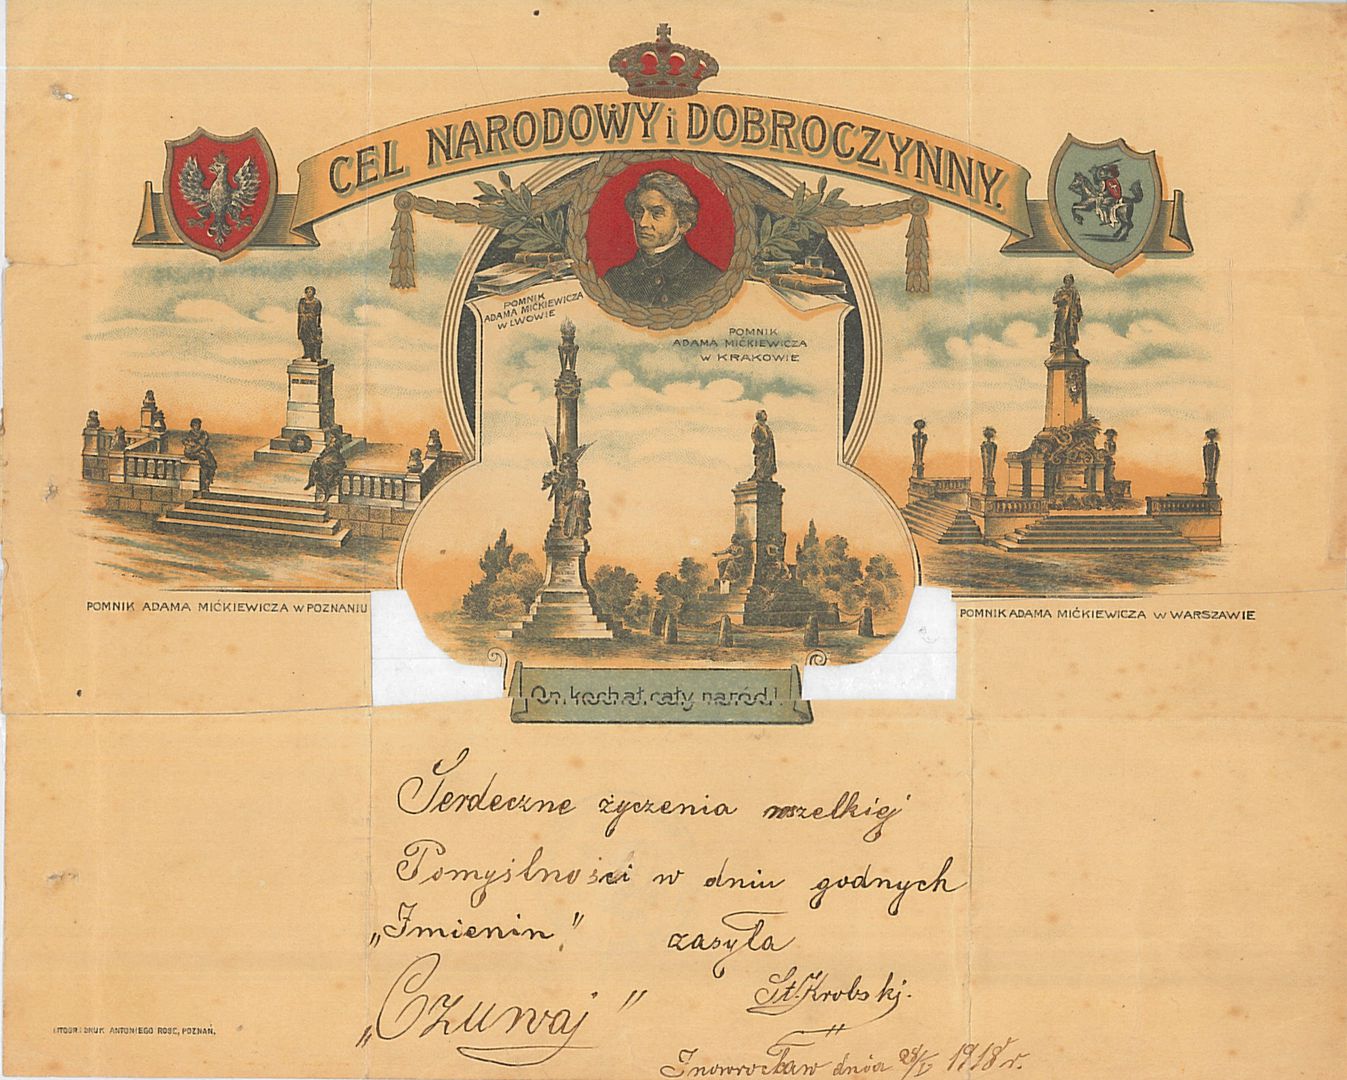 CEL NARODOWY i DOBROCZYNNY.
POMNIK
ADAMA MIĆKIEWICZA
W LWOWIE
POMNIK
ADAMA MIĆKIEWICZA
W KRAKOWIE
POMNIK ADAMA MIĆKIEWICZA W POZNANIU
POMNIK ADAMA MIĆKIEWICZA W WARSZAWIE
On kochał cały naród!
Serdeczne życzenia wszelkiej
Pomyślności w dniu godnych
„Imienin” zasyła
St. Krobskj.
„Czuwaj”
Inowrocław dnia 28/I 1918 r.
LITOGR. i DRUK. ANTONIEGO ROSE, POZNAŃ.